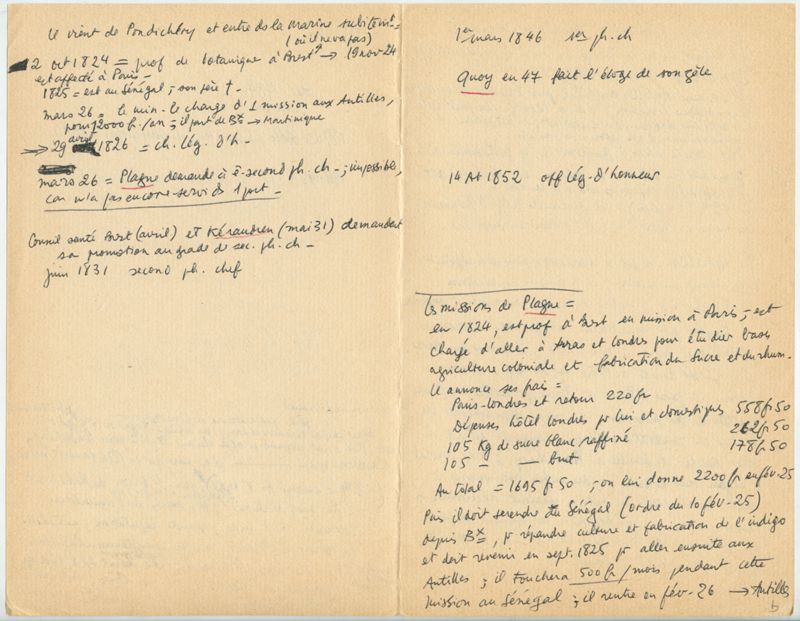 Il vient de Pondichéry et entre ds la Marine subitemt =
(où il ne va pas)
2 oct 1824 = prof de botanique à Brest → 19 nov-24
est affecté à Paris -
1825 = est au Sénégal ; son père †
mars 26 = le min. le charge d'1 mission aux Antilles,
pour 12000 fr./an ; il part de Bx → Martinique
→ 29 avril 1826 = ch. lég. d'h.
mars 26 = Plagne demande à ê. second ph. ch - ; impossible,
car n'a pas encore servi ds 1 port -
Conseil santé Brest (avril) et Kéraudren (mai 31) demandent
sa promotion au grade de sec. ph. ch -
juin 1831 second ph. chef
1er mars 1846 1er ph. ch
Quoy en 47 fait l'éloge de son zèle
14 At 1852 off lég. d'honneur
Les missions de Plagne =
en 1824, est prof à Brest en mission à Paris ; est
chargé d'aller à Arras et Londres pour étudier bases
agriculture coloniale et fabrication du sucre et du rhum.
Il annonce ses frais =
Paris-Londres et retour 220 fr
Dépenses hôtel Londres pr lui et domestiques 558 fr 50
105 Kg de sucre blanc raffiné 262 fr 50
105 — — brut 178 fr 50
Au total = 1695 fr 50 ; on lui donne 2200 fr en fév-25
Puis il doit se rendre au Sénégal (ordre du 10 fév-25)
depuis Bx, pr répandre culture et fabrication de l'indigo
et doit revenir en sept. 1825 pr aller ensuite aux
Antilles ; il touchera 500 fr/mois pendant cette
mission au Sénégal ; il rentre en fév-26 → Antilles